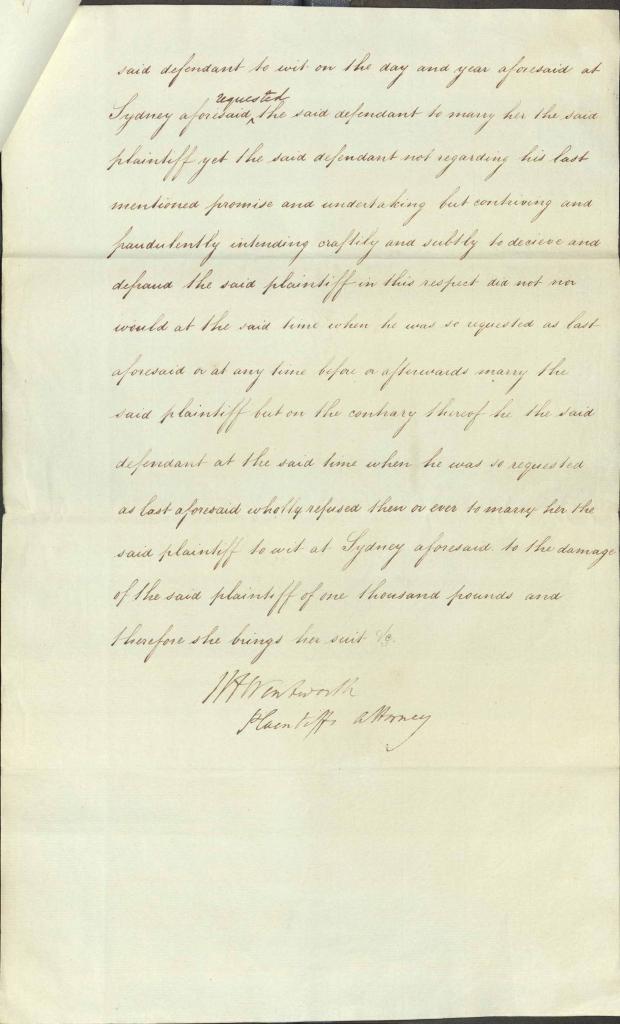 said defendant to wit on the day and year aforesaid at
requested
Sydney aforesaid ^ the said defendant to marry her the said
plaintiff yet the said defendant not regarding his last
mentioned promise and undertaking but contriving and
fraudulently intending craftily and subtly to decieve and
defraud the said plaintiff in this respect did not nor
would at the said time when he was so requested as last
aforesaid or at any time before or afterwards marry the
said plaintiff but on the contrary thereof he the said
defendant at the said time when he was so requested
as last aforesaid wholly refused then or ever to marry her the
said plaintiff to wit at Sydney aforesaid. to the damage
of the said plaintiff of one thousand pounds and
therefore she brings her suit &c
Wentworth
Plaintiffs attorney